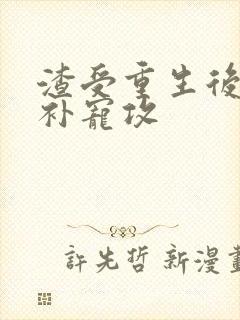 渣受重生後
补寵攻
許先哲 新漫畫